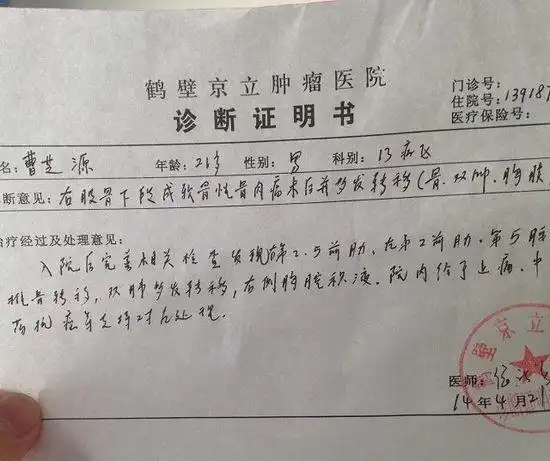 鹤壁京立肿瘤医院
门诊号:
诊断证明书
住院号:139187
医疗保险号:
名:曹芝源 年龄:21岁 性别:男 科别:13病区
断意见:右股骨下段成软骨性骨肉瘤术后并多发转移(骨.双肺.胸膜
治疗经过及处理意见:
入院后完善相关检查发现右第2.5前肋、左第2前肋、第5腰
椎骨转移,双肺多发转移,右侧胸腔积液.院内给予止痛.中
药抗癌等支持对症处理.
鹤壁京立
医师:
14年4月21